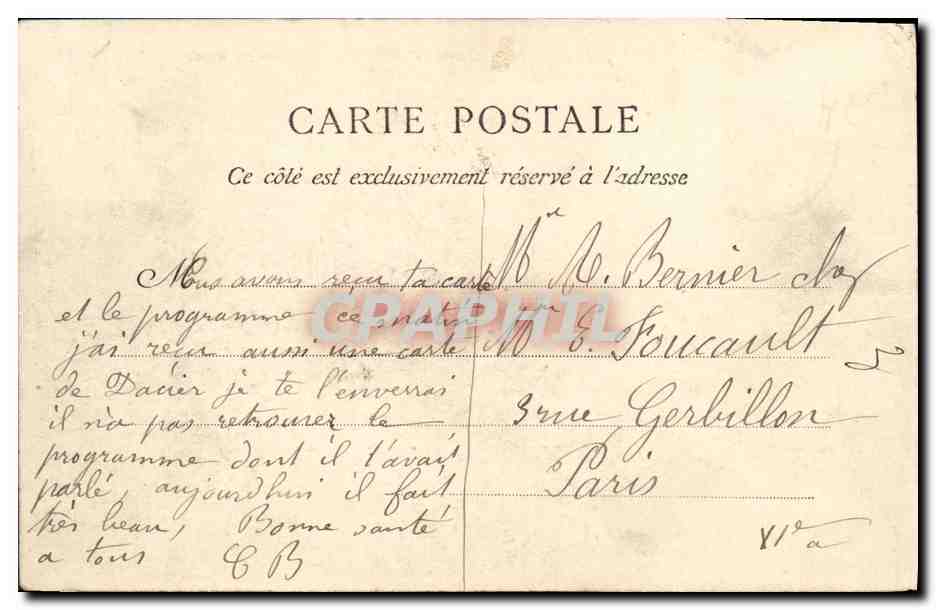 CARTE POSTALE
Ce côté est exclusivement réservé à l'adresse
Nous avons reçu ta carte
et le programme ce matin
j'ai reçu aussi une carte
de Dacier je te l'enverrai
il n'a pas retrouver le
programme dont il t'avait
parlé, aujourdhui il fait
très beau, Bonne santé
a tous CB
Mel R. Bernier chez
Mr E. Foucault
3 rue Gerbillon
Paris
XIe
3
CRAPHIL